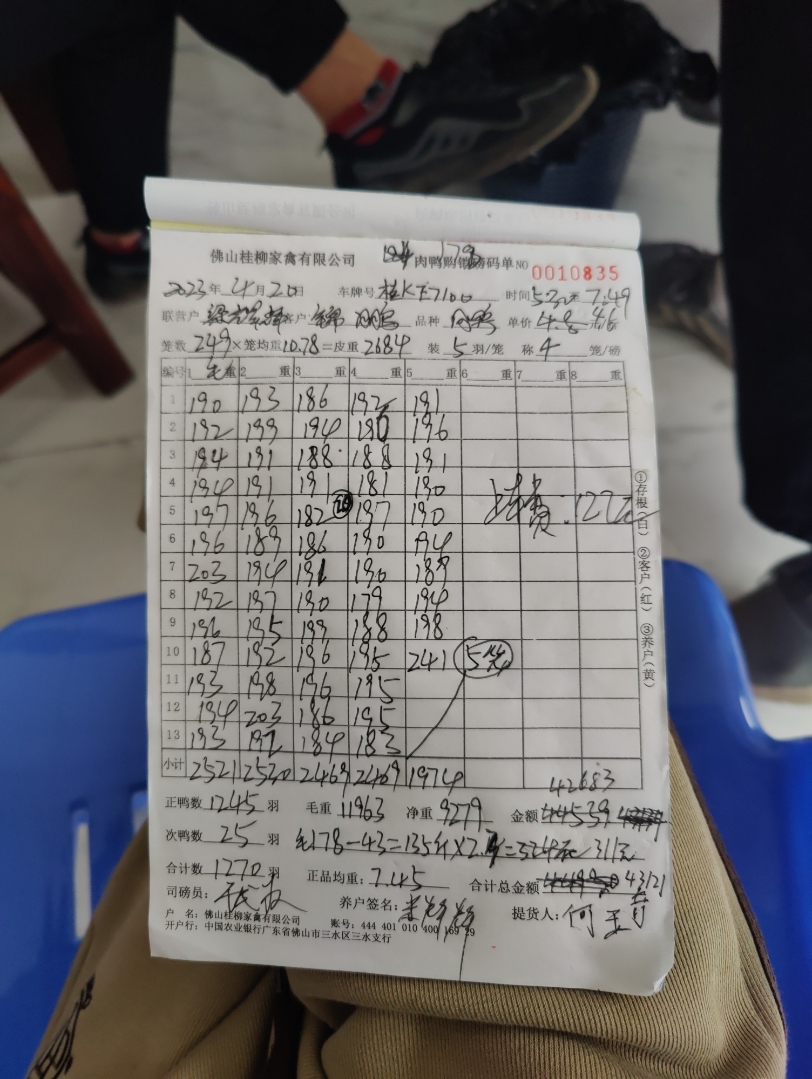 佛山桂柳家禽有限公司 179 肉鸭购销磅码单 NO 0010835
2023年 4月20日 车牌号 桂KE7100 时间 7:49
联营户 客户 品种 肉鸭 单价 4.8 4.6
笼数 249 ×笼均重 10.78 =皮重 2684 装 5 羽/笼 称 4 笼/磅
编号 1 毛重 2 重 3 重 4 重 5 重 6 重 7 重 8 重
1 190 193 186 192 191
2 192 199 194 190 196
3 194 191 188 188 191
4 194 191 191 181 190
5 197 196 182 197 190
6 196 189 186 190 194
7 203 194 191 190 189
8 192 197 190 179 194
9 196 195 199 188 198
10 187 192 196 195 241 5笼
11 193 198 196 195
12 194 203 186 195
13 193 192 184 183
费:122元
小计 2521 2530 2469 2469 1974
①存根(白) ②客户(红) ③养户(黄)
42683
正鸭数 1245 羽 毛重 11963 净重 9279 金额 44539
次鸭数 25 羽 毛178-43=135斤×2. =324元 311元
合计数 1270 羽 正品均重: 7.45 合计总金额 43121
司磅员: 养户签名: 提货人: 何
户 名: 佛山桂柳家禽有限公司 账号: 444 401 010 400 169 29
开户行: 中国农业银行广东省佛山市三水区三水支行